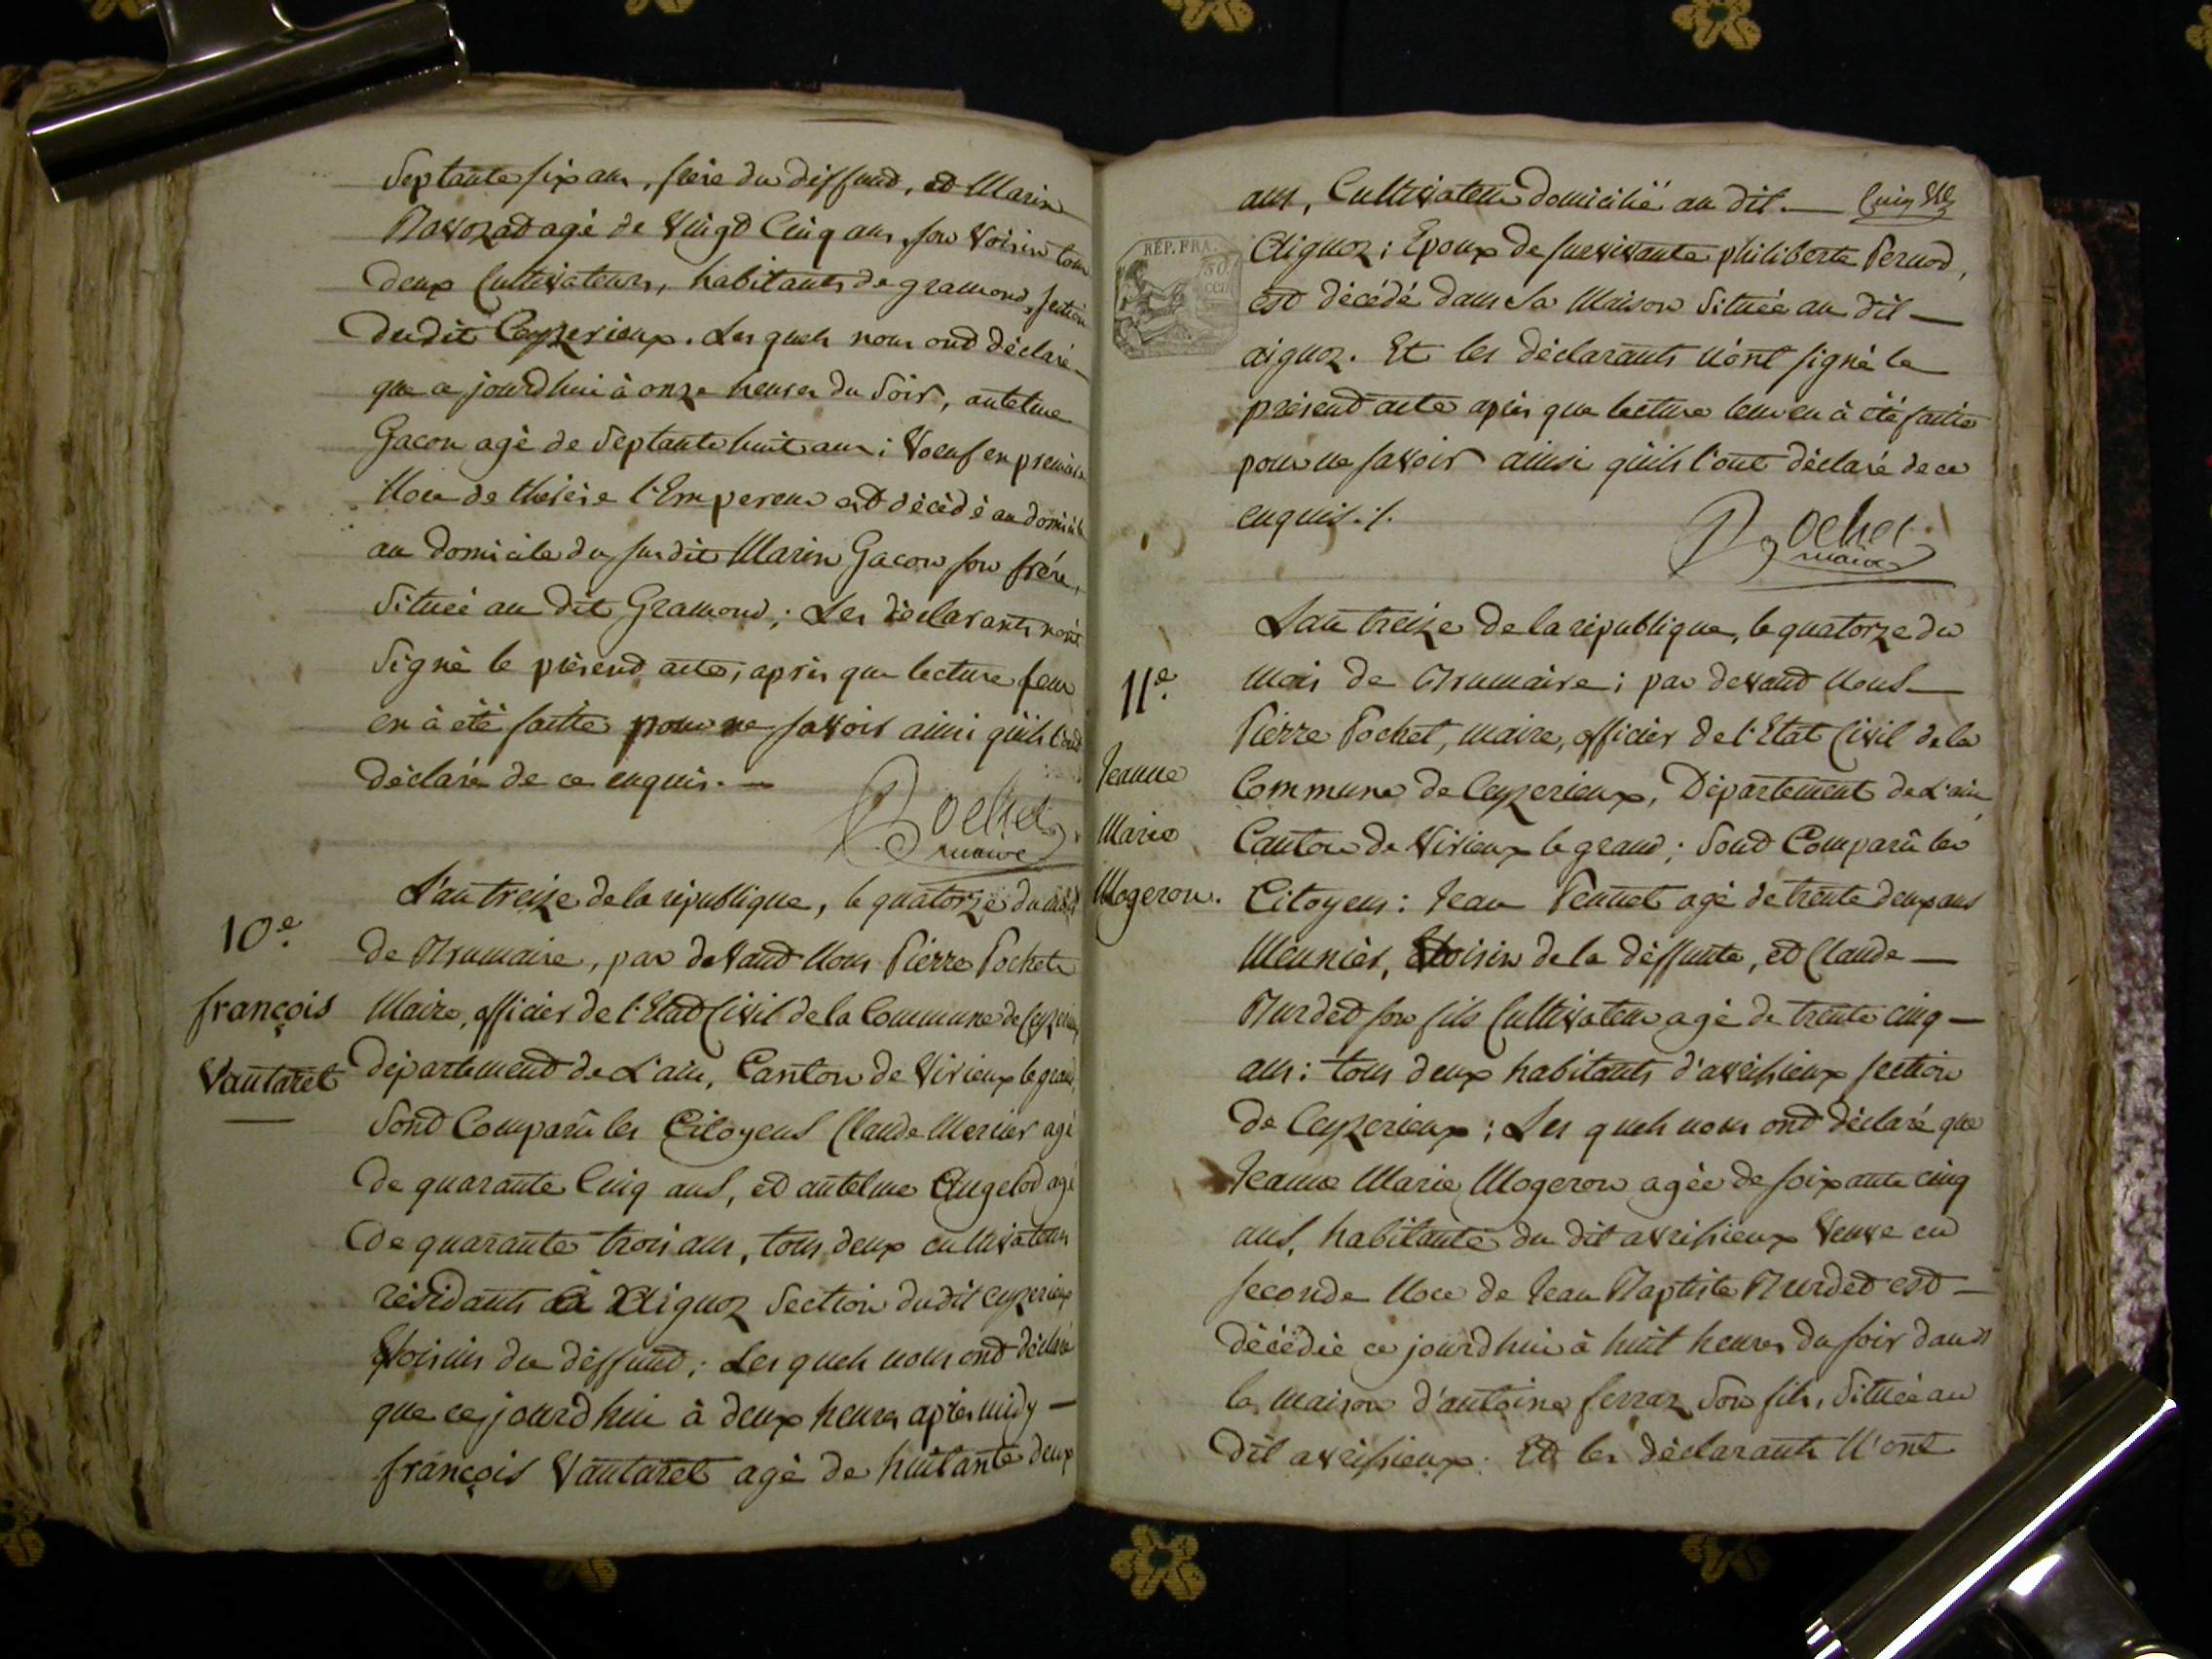 Septante six ans, frère du deffund, et Marin
Ravozad agé de vingt Cinq ans, son voisin tous
deux Cultivateurs, habitants de gramond, section
dudit Ceyzerieux. Les quels nous ond déclaré
que ce jourdhui à onze heures du soir, antelme
Gacon agé de septante huit ans; voeuf en premiere
Noce de thérèse l'Empereur est décédé au domicile
au domicile du susdit Marin Gacon son frére,
située au dit Gramond; Les déclarants n'ont
signé le présend acte, après que lecture leur
en à été faitte pour ne savoir ainsi qu'ils l'ond
déclaré de ce enquis. —
Pochet
maire
10e.
françois
Vautaret
L'an treize de la république, le quatorze du mois
de Brumaire, par devand Nous Pierre Pochet
Maire, officier de l'Etad Civil de la Commune de Ceyzerieux
département de L'ain, Canton de Virieux le grand,
Sond Comparû les Citoyens Claude Mercier agé
de quarante Cinq ans, et antelme Angelod agé
de quarante trois ans, tous deux cultivateurs
résidants à Aignoz Section dudit ceyzerieux
voisins du deffund; Les quels nous ond déclaré
que ce jourdhui à deux heures après midy —
françois Vautaret agé de huitante deux
ans, Cultivateur domicilié au dit —
RÉP. FRA.
50
Aignoz; Epoux de survivante philiberte Pernod,
est décédé dans sa Maison Située au dit —
aignoz. Et les déclarants n'ont signé le
présend acte après que lecture leur en à été faitte
pour ne savoir ainsi qu'ils l'ont déclaré de ce
enquis ./.
Pochet
maire
11e.
Jeanne
Marie
Mogeron.
L'an treize de la république, le quatorze du
mois de Brumaire; par devand Nous —
Pierre Pochet, maire, officier de l'Etat Civil de la
Commune de Ceyzerieux, Département de L'ain
Canton de Virieux le grand; Sond Comparû les
Citoyens: Jean Vennet agé de trente deux ans
Meunier, voisin de la deffunte, et Claude —
Burded son fils Cultivateur agé de trente cinq —
ans: tous deux habitants d'avrissieux section
de Ceyzerieux; Les quels nous ond déclaré que
Jeanne Marie Mogeron agée de soixante cinq
ans, habitante du dit avrissieux Veuve en
seconde Noce de Jean Baptiste Burded est —
décédée ce jourdhui à huit heures du soir dans
la maison d'antoine ferraz son fils, Située au
dit avrissieux. Et les déclarants N'ont